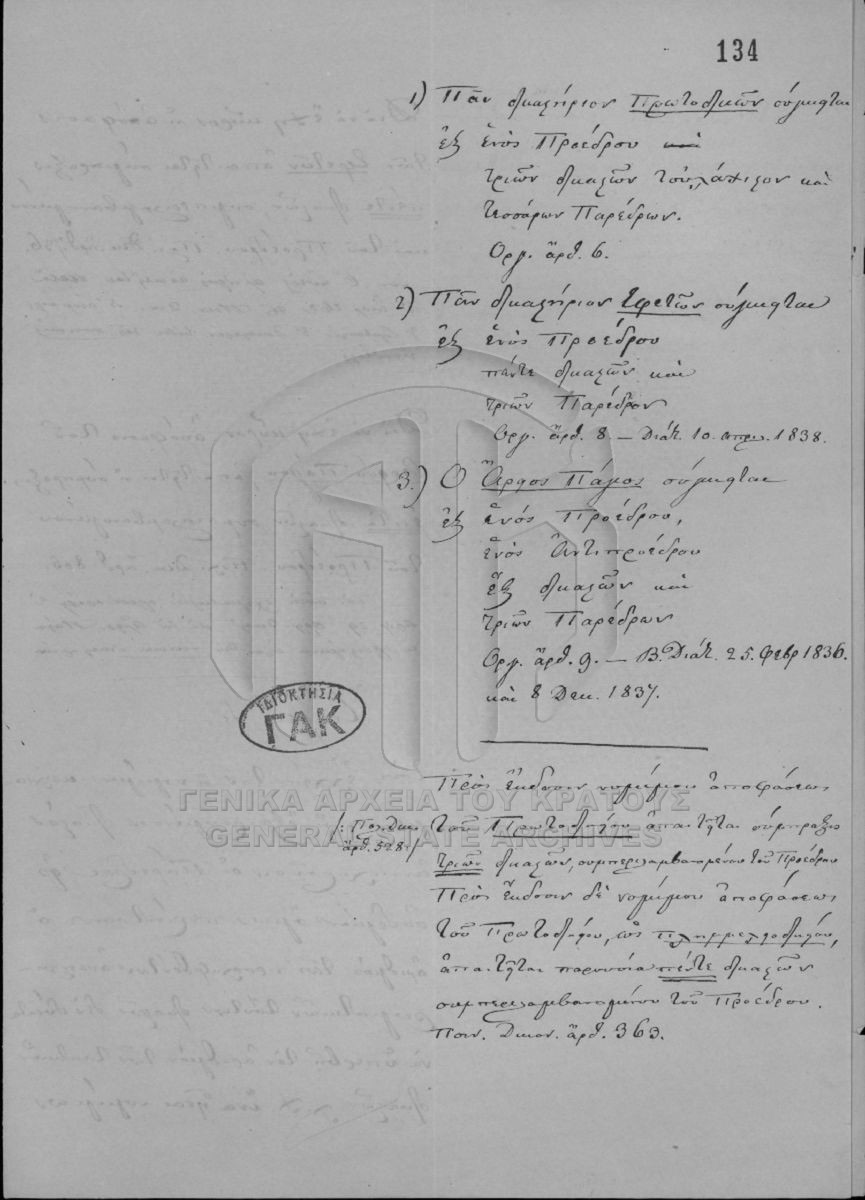 134
1) Πᾶν δικαστήριον Πρωτοδικῶν σύγκειται
ἐξ ἑνὸς Προέδρου καὶ
τριῶν δικαστῶν τοὐλάχιστον καὶ
τεσσάρων Παρέδρων.
Ὀργ. ἄρθ. 6.
2) Πᾶν δικαστήριον Ἐφετῶν σύγκειται
ἐξ ἑνὸς Προέδρου
πέντε δικαστῶν καὶ
τριῶν Παρέδρων
Ὀργ. ἄρθ. 8. — Διάτ. 10. Απρι. 1838.
3.) Ὁ Ἄρειος Πάγος σύγκειται
ἐξ ἑνὸς Προέδρου,
ἑνὸς Ἀντιπροέδρου
ἓξ δικαστῶν καὶ
τριῶν Παρέδρων
Ὀργ. ἄρθ. 9. — Β. Διάτ. 25. Φεβρ 1836.
καὶ 8 Δεκ. 1837.
ΙΔΙΟΚΤΗΣΙΑ
ΓΑΚ
Πρὸς ἔκδοσιν νομίμου ἀποφάσεως
ΓΕΝΙΚΑ ΑΡΧΕΙΑ ΤΟΥ ΚΡΑΤΟΥΣ
GENERAL STATE ARCHIVES
/: Πολ. Δικ.
ἄρθ. 528 :/
τοῦ Πρωτοδικείου ἀπαιτεῖται σύμπραξις
τριῶν δικαστῶν, συμπεριλαμβανομένου τοῦ Προέδρου
Πρὸς ἔκδοσιν δὲ νομίμου ἀποφάσεως
τοῦ Πρωτοδικείου, ὡς πλημμελειοδικείου,
ἀπαιτεῖται παρουσία πέντε δικαστῶν
συμπεριλαμβανομένου τοῦ Προέδρου.
Ποιν. Δικον. ἄρθ. 363.